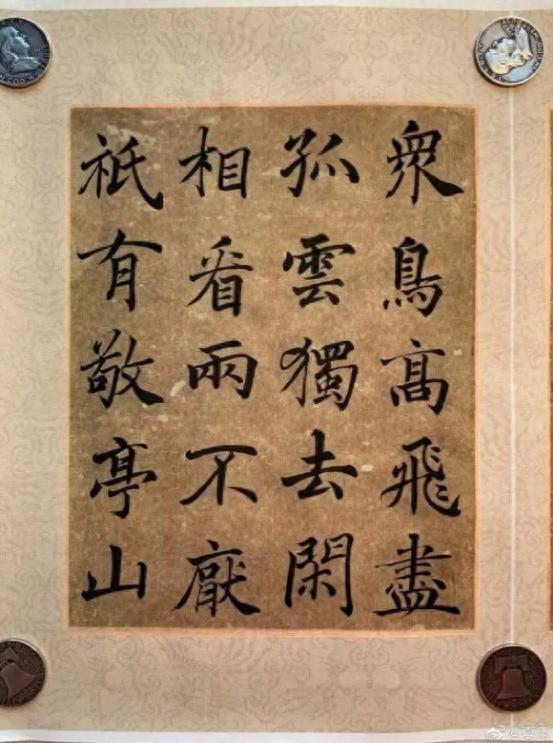 眾鳥髙飛盡
孤雲獨去閑
相看兩不厭
祇有敬亭山